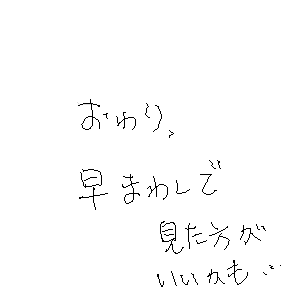 おわり、
早まわしで
見た方が
いいかも…